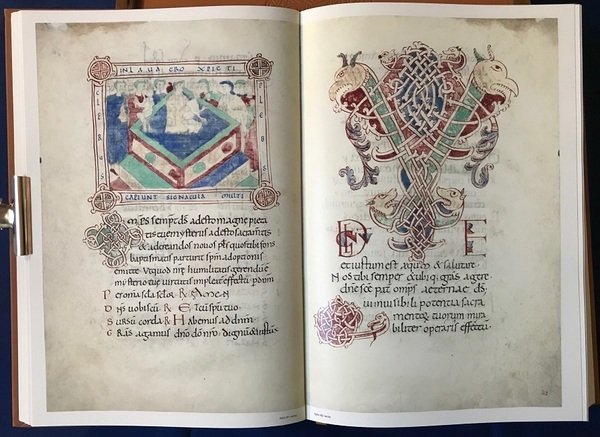 IN LAUACRO XPICTI
CLERUS
PLEBS
CAPIUNT SIGNACULA MULTI
Omps sempr ds adesto magne pieta
tis tuae mysteriis adesto sacramtis
& ad creandos nouos pplos quos tibi fons
baptismatis parturit spm adoptionis
emitte. Ut quod nri humilitatis gerendum e
misterio tuae uirtutis impleatur effectu. p dnm
Per omnia scla sclor R Amen
Dns uobiscum R Et cu spu tuo
Sursu corda R Habemus ad dnm
Gras agamus dno do nro. Dignu & iustu est
VERE
et iustum est aequm & salutare
Nos tibi semper & ubiq gras agere
dne sce pat omps aeternae ds.
Qui inuisibili potentia sacra
mentor tuorum mira
biliter operaris effectu.